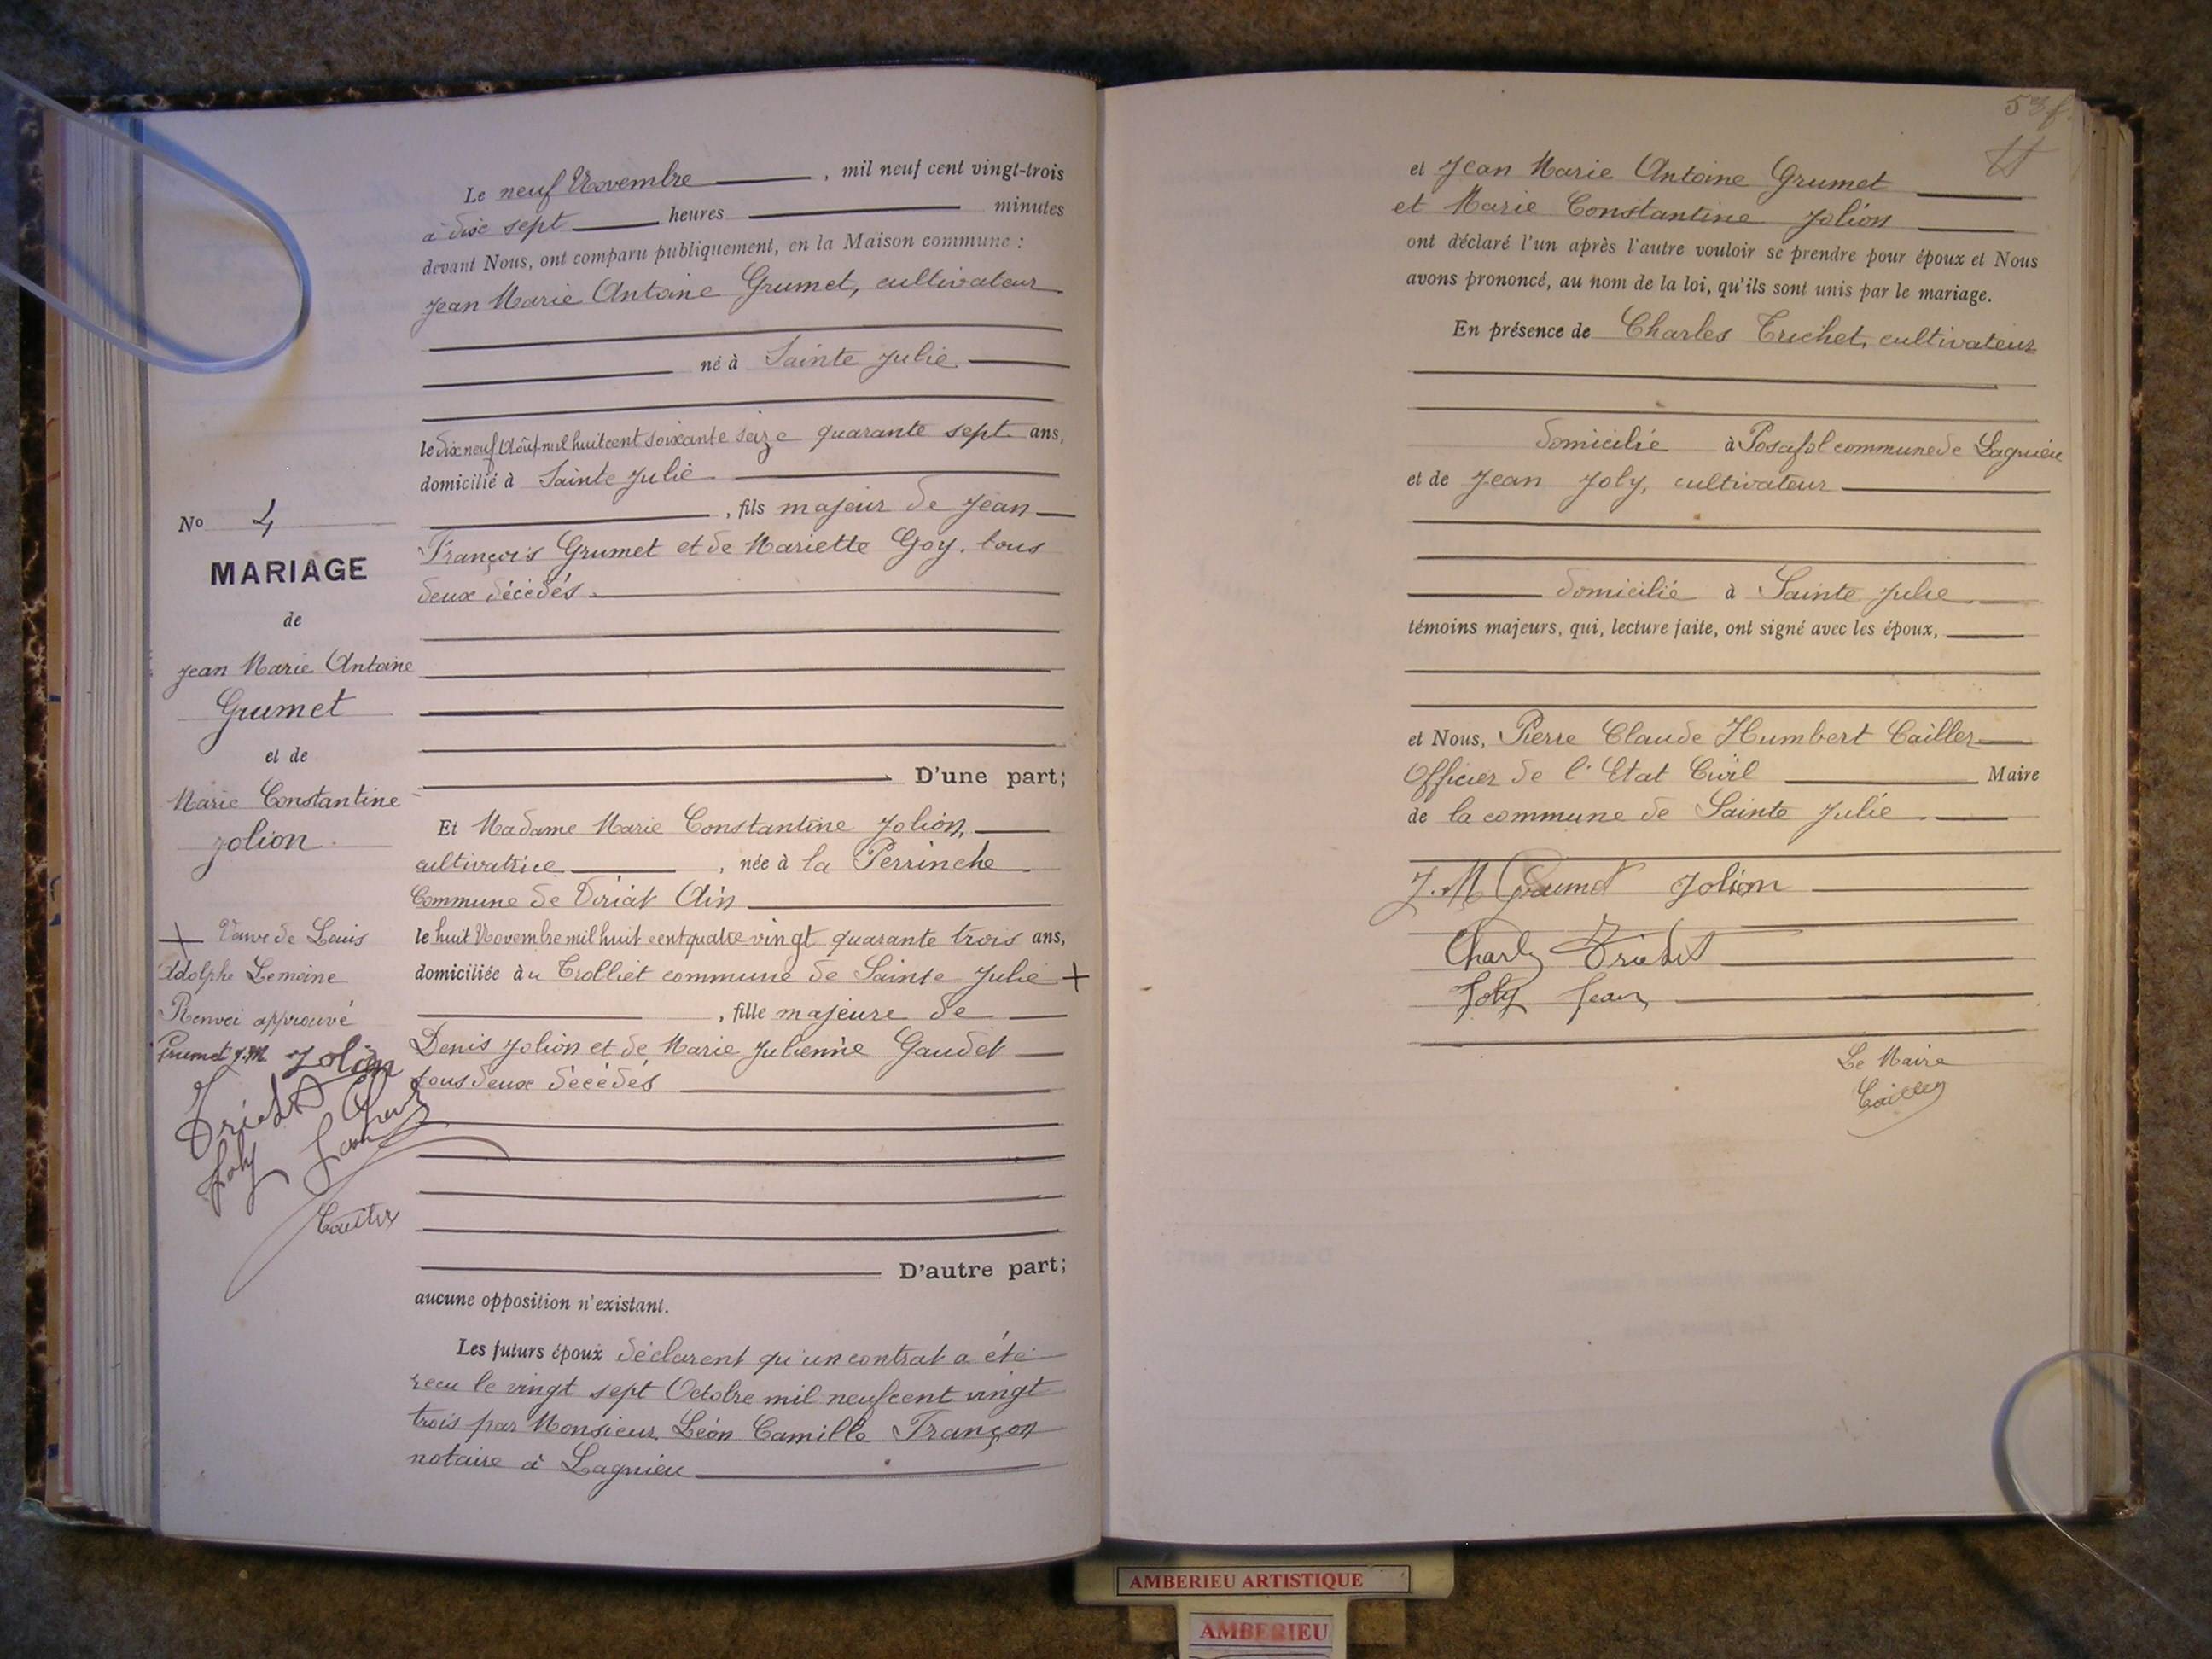 Le neuf Novembre, mil neuf cent vingt-trois
à dix sept heures minutes
devant Nous, ont comparu publiquement, en la Maison commune :
Jean Marie Antoine Grumet, cultivateur
né à Sainte Julie
le dix neuf Août mil huit cent soixante seize quarante sept ans,
domicilié à Sainte Julie
, fils majeur de Jean
François Grumet et de Mariette Goy, tous
deux décédés.
D'une part;
Et Madame Marie Constantine Jolion,
cultivatrice, née à la Perrinche
Commune de Viriat Ain
le huit Novembre mil huit cent quatre vingt quarante trois ans,
domiciliée au Trolliet commune de Sainte Julie +
, fille majeure de
Denis Jolion et de Marie Julienne Gaudet
tous deux décédés
D'autre part;
aucune opposition n'existant.
Les futurs époux déclarent qu'un contrat a été
recu le vingt sept Octobre mil neuf cent vingt
trois par Monsieur Léon Camille Françon
notaire à Lagnieu
No 4
MARIAGE
de
Jean Marie Antoine
Grumet
et de
Marie Constantine
Jolion
+ Veuve de Louis
Adolphe Lemoine
Renvoi approuvé
Grumet J.M Jolion
Trichet
Joly Jean
Cailler
53 f.
et Jean Marie Antoine Grumet
et Marie Constantine Jolion
ont déclaré l'un après l'autre vouloir se prendre pour époux et Nous
avons prononcé, au nom de la loi, qu'ils sont unis par le mariage.
En présence de Charles Trichet, cultivateur
domicilié à Posafol commune de Lagnieu
et de Jean Joly, cultivateur
domicilié à Sainte Julie
témoins majeurs, qui, lecture faite, ont signé avec les époux,
et Nous, Pierre Claude Humbert Cailler
Officier de l'Etat Civil Maire
de la commune de Sainte Julie
J. M Grumet Jolion
Charles Trichet
Joly Jean
Le Maire
Cailler
AMBERIEU ARTISTIQUE
AMBERIEU